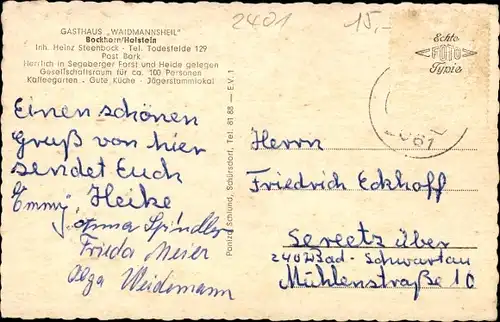 2401
15,-
GASTHAUS „WAIDMANNSHEIL"
Bockhorn/Holstein
Inh. Heinz Steenbock - Tel. Todesfelde 129
Post Bark
Herrlich in Segeberger Forst und Heide gelegen
Gesellschaftsraum für ca. 100 Personen
Kaffeegarten - Gute Küche - Jägerstammlokal
Einen schönen
Gruß von hier
sendet Euch
Emmy, Heike
Anna Spindler
Frieda Meier
Olga Weidemann
Panitz Schlund, Schürsdorf, Tel. 81 88 — E.V. 1
Echte
FOTO
Typie
61
Herrn
Friedrich Eckhoff
Sereetz über
2407 Bad-Schwartau
Mühlenstraße 10